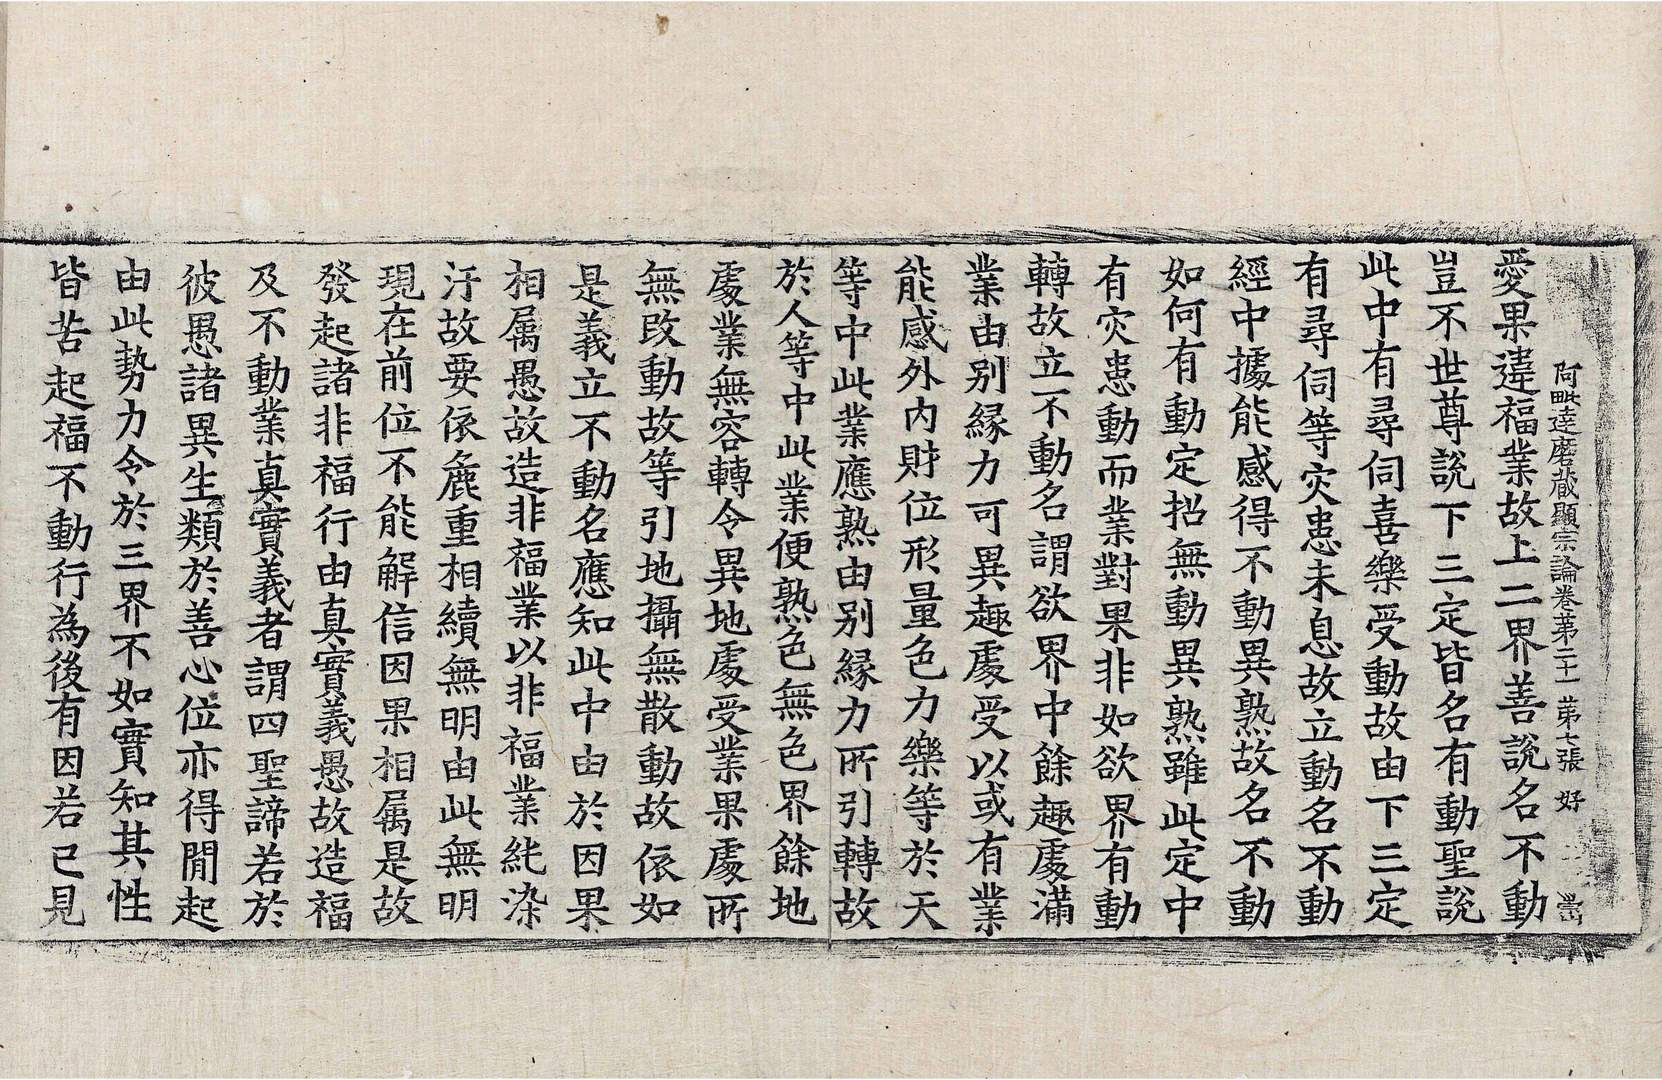 阿毗達磨藏顯宗論卷第二十一 第七張 好
愛果違福業故上二界善說名不動
豈不世尊說下三定皆名有動聖說
此中有尋伺喜樂受動故由下三定
有尋伺等灾患未息故立動名不動
經中據能感得不動異熟故名不動
如何有動定招無動異熟雖此定中
有灾患動而業對果非如欲界有動
轉故立不動名謂欲界中餘趣處滿
業由別緣力可異趣處受以或有業
能感外內財位形量色力樂等於天
等中此業應熟由別緣力所引轉故
於人等中此業便熟色無色界餘地
處業無容轉令異地處受業果處所
無改動故等引地攝無散動故依如
是義立不動名應知此中由於因果
相属愚故造非福業以非福業純染
汙故要依麁重相續無明由此無明
現在前位不能解信因果相属是故
發起諸非福行由真實義愚故造福
及不動業真實義者謂四聖諦若於
彼愚諸異生類於善心位亦得閒起
由此勢力令於三界不如實知其性
皆苦起福不動行為後有因若已見